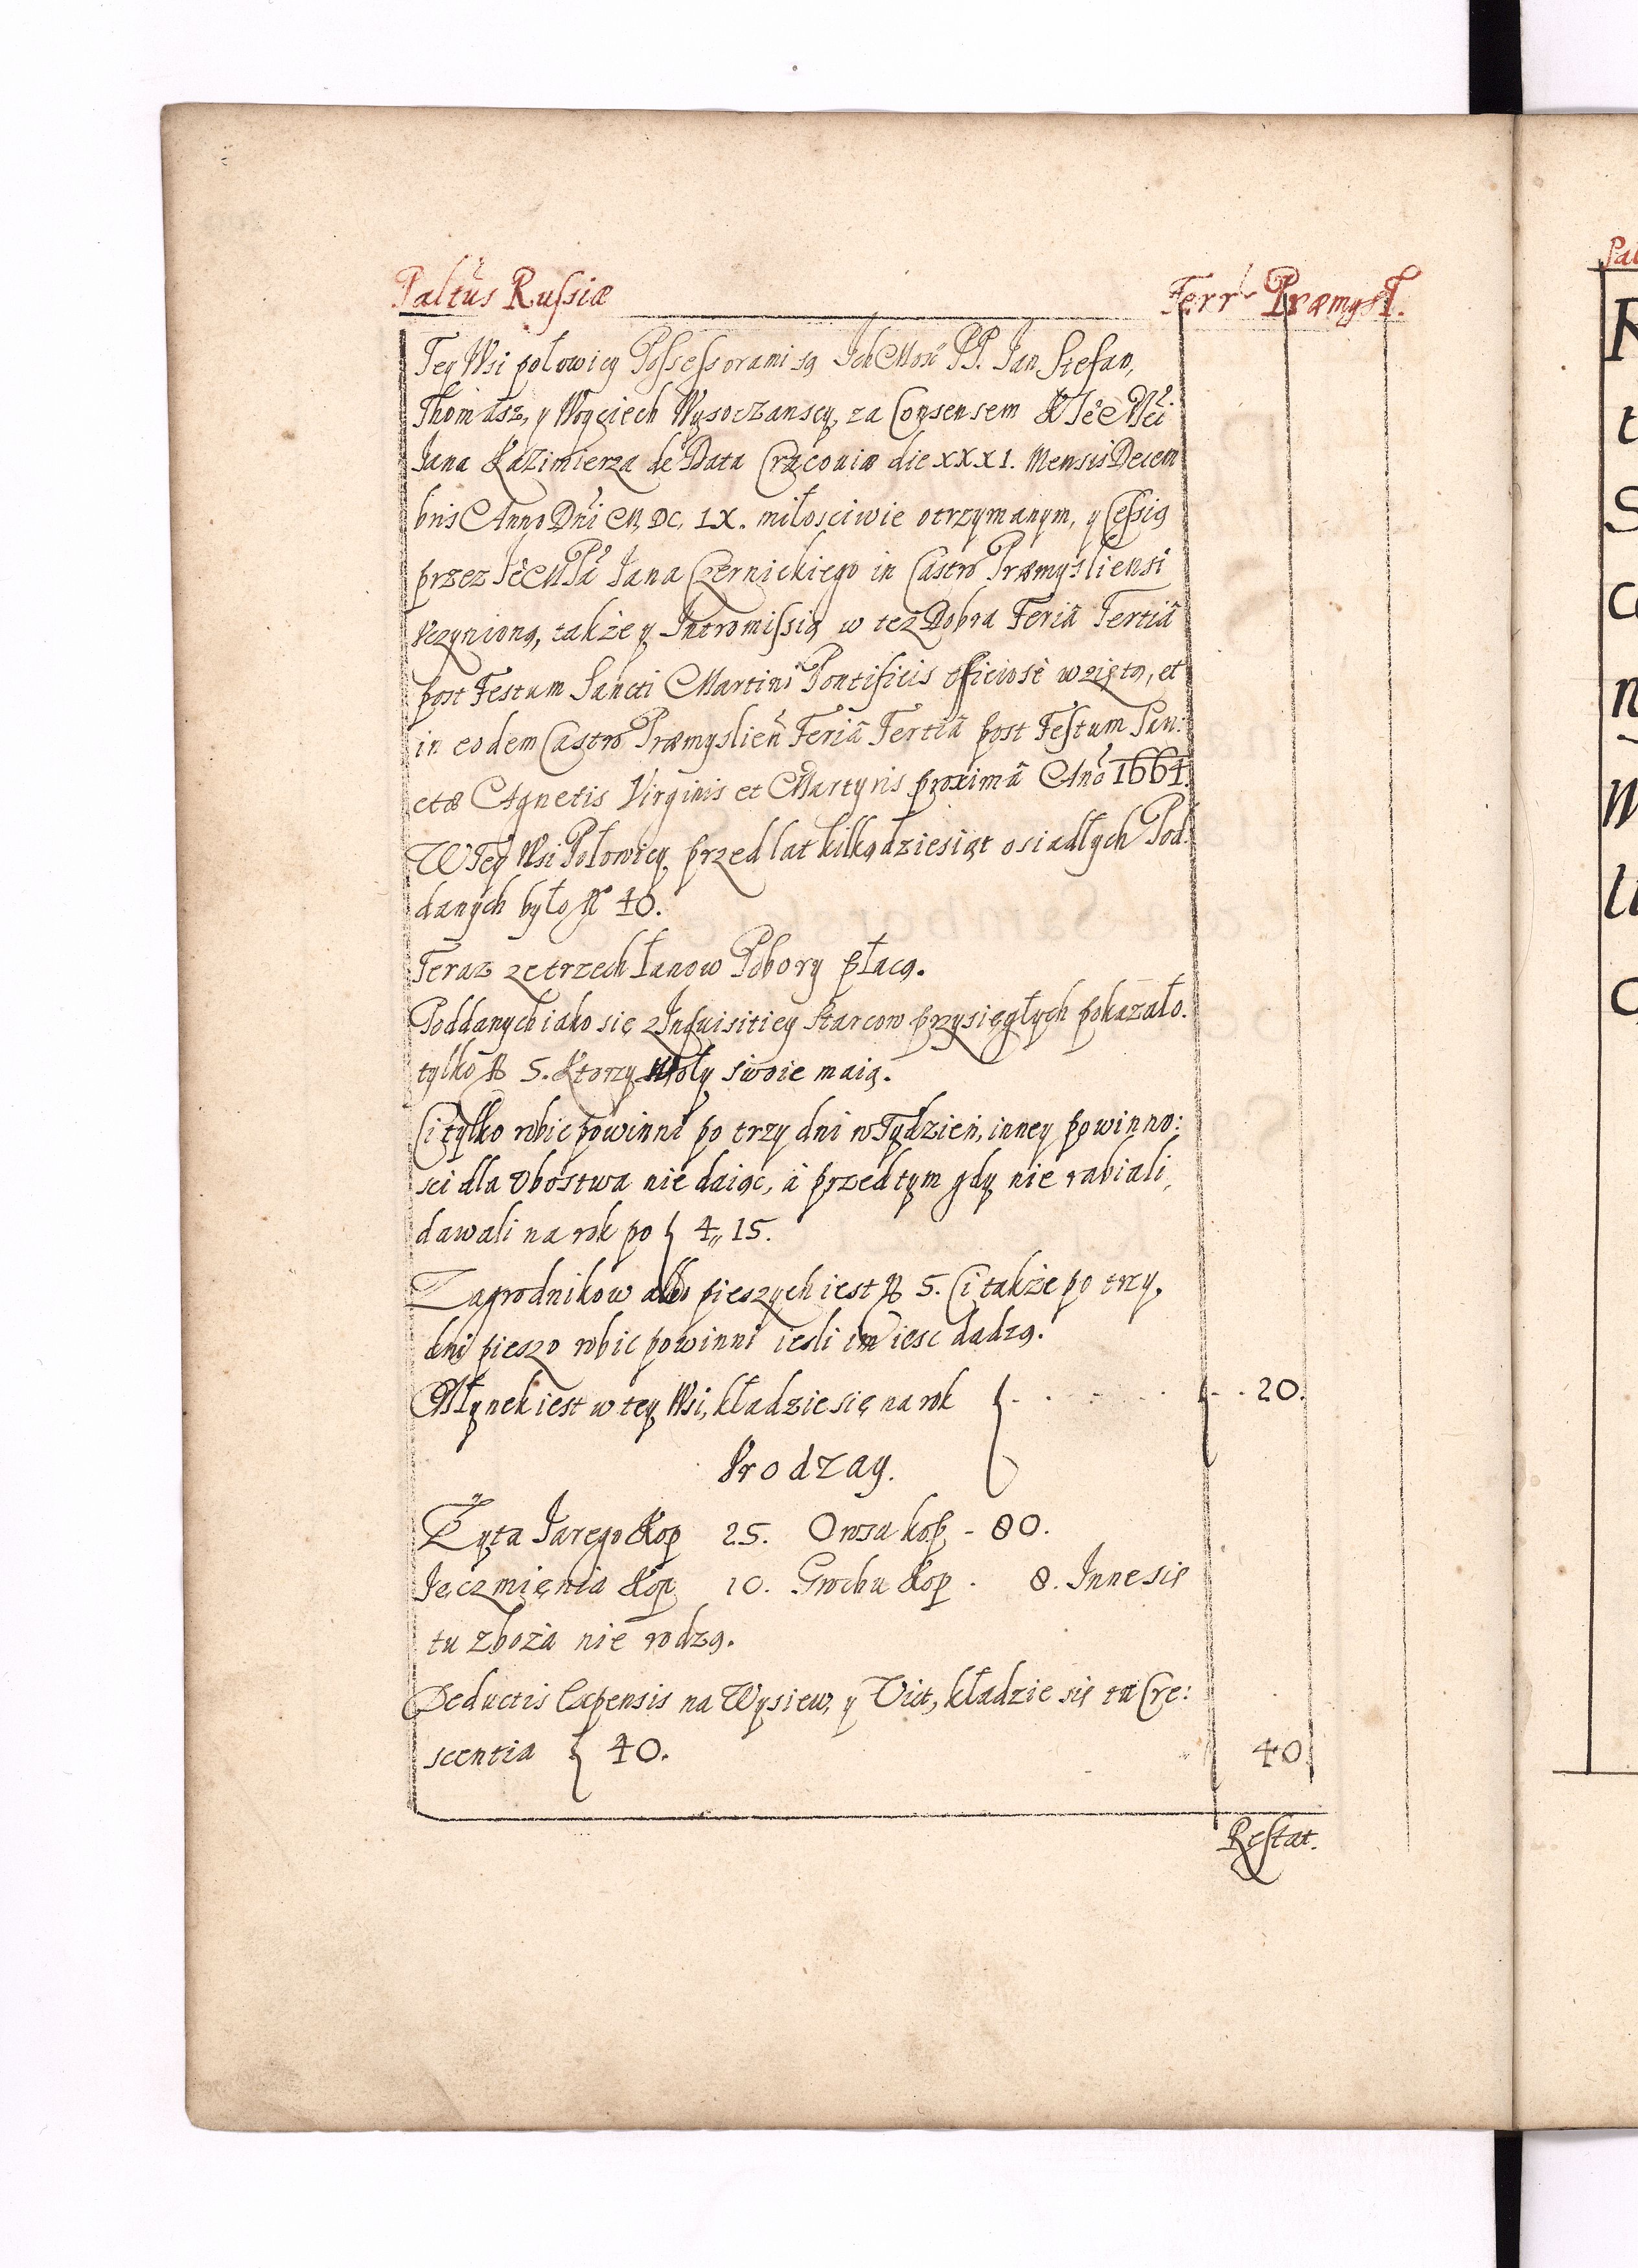 Paltũs Russiæ
Terr. Præmysl.
Tey Wsi połowicy Possessorami są Ich Mosć PP. Jan, Stefan,
Thomasz, y Woyciech Wysoczanscy, za Consensem K Je̊ Mci
Jana Kazimierza de Data Cracoviæ die XXXI. Mensis Decem
bris Anno Dni M, DC, LX. miłosciwie otrzymanym, y Cessią
przez Je̊ M Pa Jana Czernickiego in Castro Præmysliensi
vczynioną, także y Intromissią w też Dobra Feriâ Tertiâ
post Festum Sancti Martini Pontificis officiosè wziętą, et
in eodem Castro Præmyslień Feriâ Tertiâ post Festum San:
ctæ Agnetis Virginis et Martyris proximâ Año 1664.
W Tey Wsi Połowicy, przed lat kilkądziesiąt osiadłych Pod
danych było N 40.
Teraz ze trzech Łanow Pobory płacą.
Poddanych iako się z Inquisitiey starcow przysięgłych pokazało.
tylko N 5. Ktorzy Woły swoie maią.
Ci tylko robic powinni po trzy dni w Tydzień, inney powinno:
sci dla Vbostwa nie daiąc, à przedtym gdy nie rabiali,
dawali na rok po } 4,, 15.
Zagrodnikow albo pieszych iest N 5. Ci także po trzy,
dni pieszo robic powinni iesli im iesc dadzą.
Młynek iest w tey Wsi, kładzie się na rok } - . - . } - . 20.
Vrodzay.
Żyta Jarego Kop 25. Owsa kop - 80.
Jęczmięnia Kop 10. Grochu Kop . 8. Inne się
tu zboża nie rodzą.
Deductis Expensis na Wysiew, y Vict, kładzie się ta Cre:
scentia } 40. 40.
Restat.